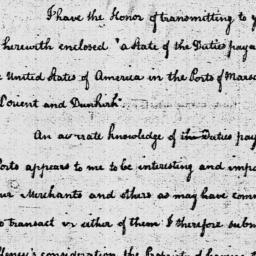 I have the Honor of transmitting to y
herewith enclosed "a State of the Duties paya
United States of America in the Ports of Mars
L'orient and Dunkirk".
An accurate knowledge of the Duties pay
Ports appears to me to be interesting and impo
ur Merchants and others as may have comm
to transact in either of them I therefore subm
consideration the Propriety of having